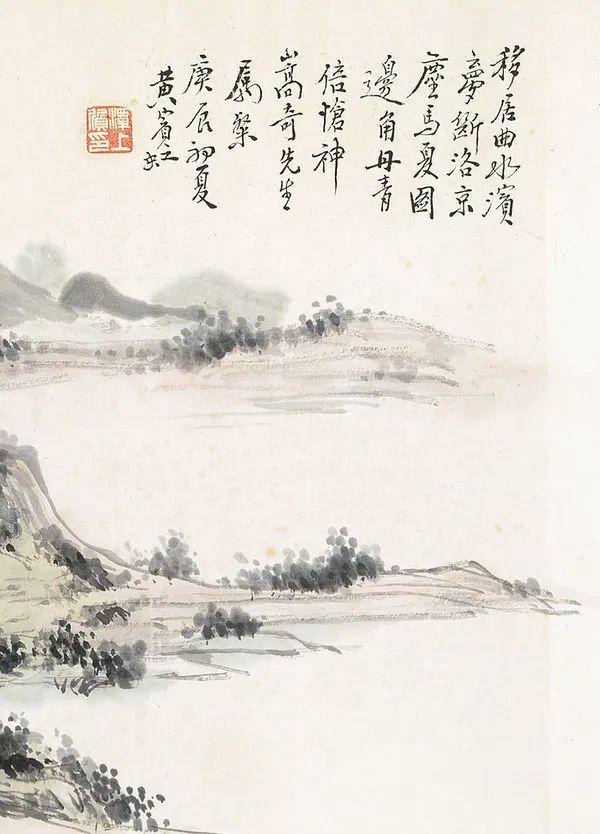 移居曲水濱
夢斷洛京
塵馬夏圖
邊角丹青
倍愴神
嵩奇先生
屬粲
庚辰初夏
黃賓虹
潭上
質印